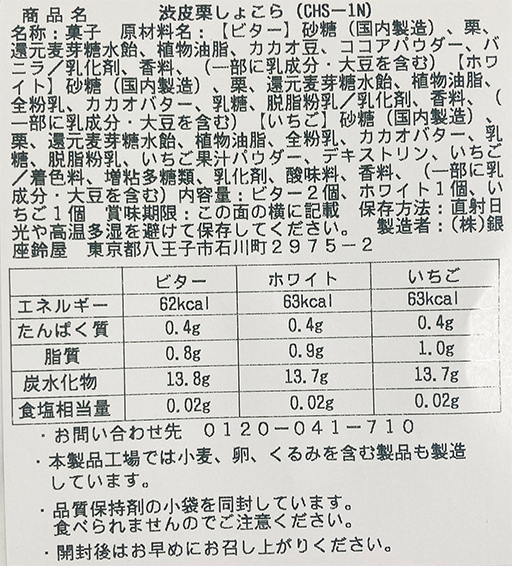 商品名　　渋皮栗しょこら（CHS－1N）
名称：菓子　原材料名：【ビター】砂糖（国内製造）、栗、
還元麦芽糖水飴、植物油脂、カカオ豆、ココアパウダー、バ
ニラ／乳化剤、香料、（一部に乳成分・大豆を含む）【ホワ
イト】砂糖（国内製造）、栗、還元麦芽糖水飴、植物油脂、
全粉乳、カカオバター、乳糖、脱脂粉乳／乳化剤、香料、（
一部に乳成分・大豆を含む）【いちご】砂糖（国内製造）、
栗、還元麦芽糖水飴、植物油脂、全粉乳、カカオバター、乳
糖、脱脂粉乳、いちご果汁パウダー、デキストリン、いちご
／着色料、増粘多糖類、乳化剤、酸味料、香料、（一部に乳
成分・大豆を含む）内容量：ビター２個、ホワイト１個、い
ちご１個　賞味期限：この面の横に記載　保存方法：直射日
光や高温多湿を避けて保存してください。　製造者：（株）銀
座鈴屋　東京都八王子市石川町２９７５－２
ビター　ホワイト　いちご
エネルギー　62kcal　63kcal　63kcal
たんぱく質　0.4g　0.4g　0.4g
脂質　0.8g　0.9g　1.0g
炭水化物　13.8g　13.7g　13.7g
食塩相当量　0.02g　0.02g　0.02g
・お問い合わせ先　０１２０－０４１－７１０
・本製品工場では小麦、卵、くるみを含む製品も製造
しています。
・品質保持剤の小袋を同封しています。
食べられませんのでご注意ください。
・開封後はお早めにお召し上がりください。